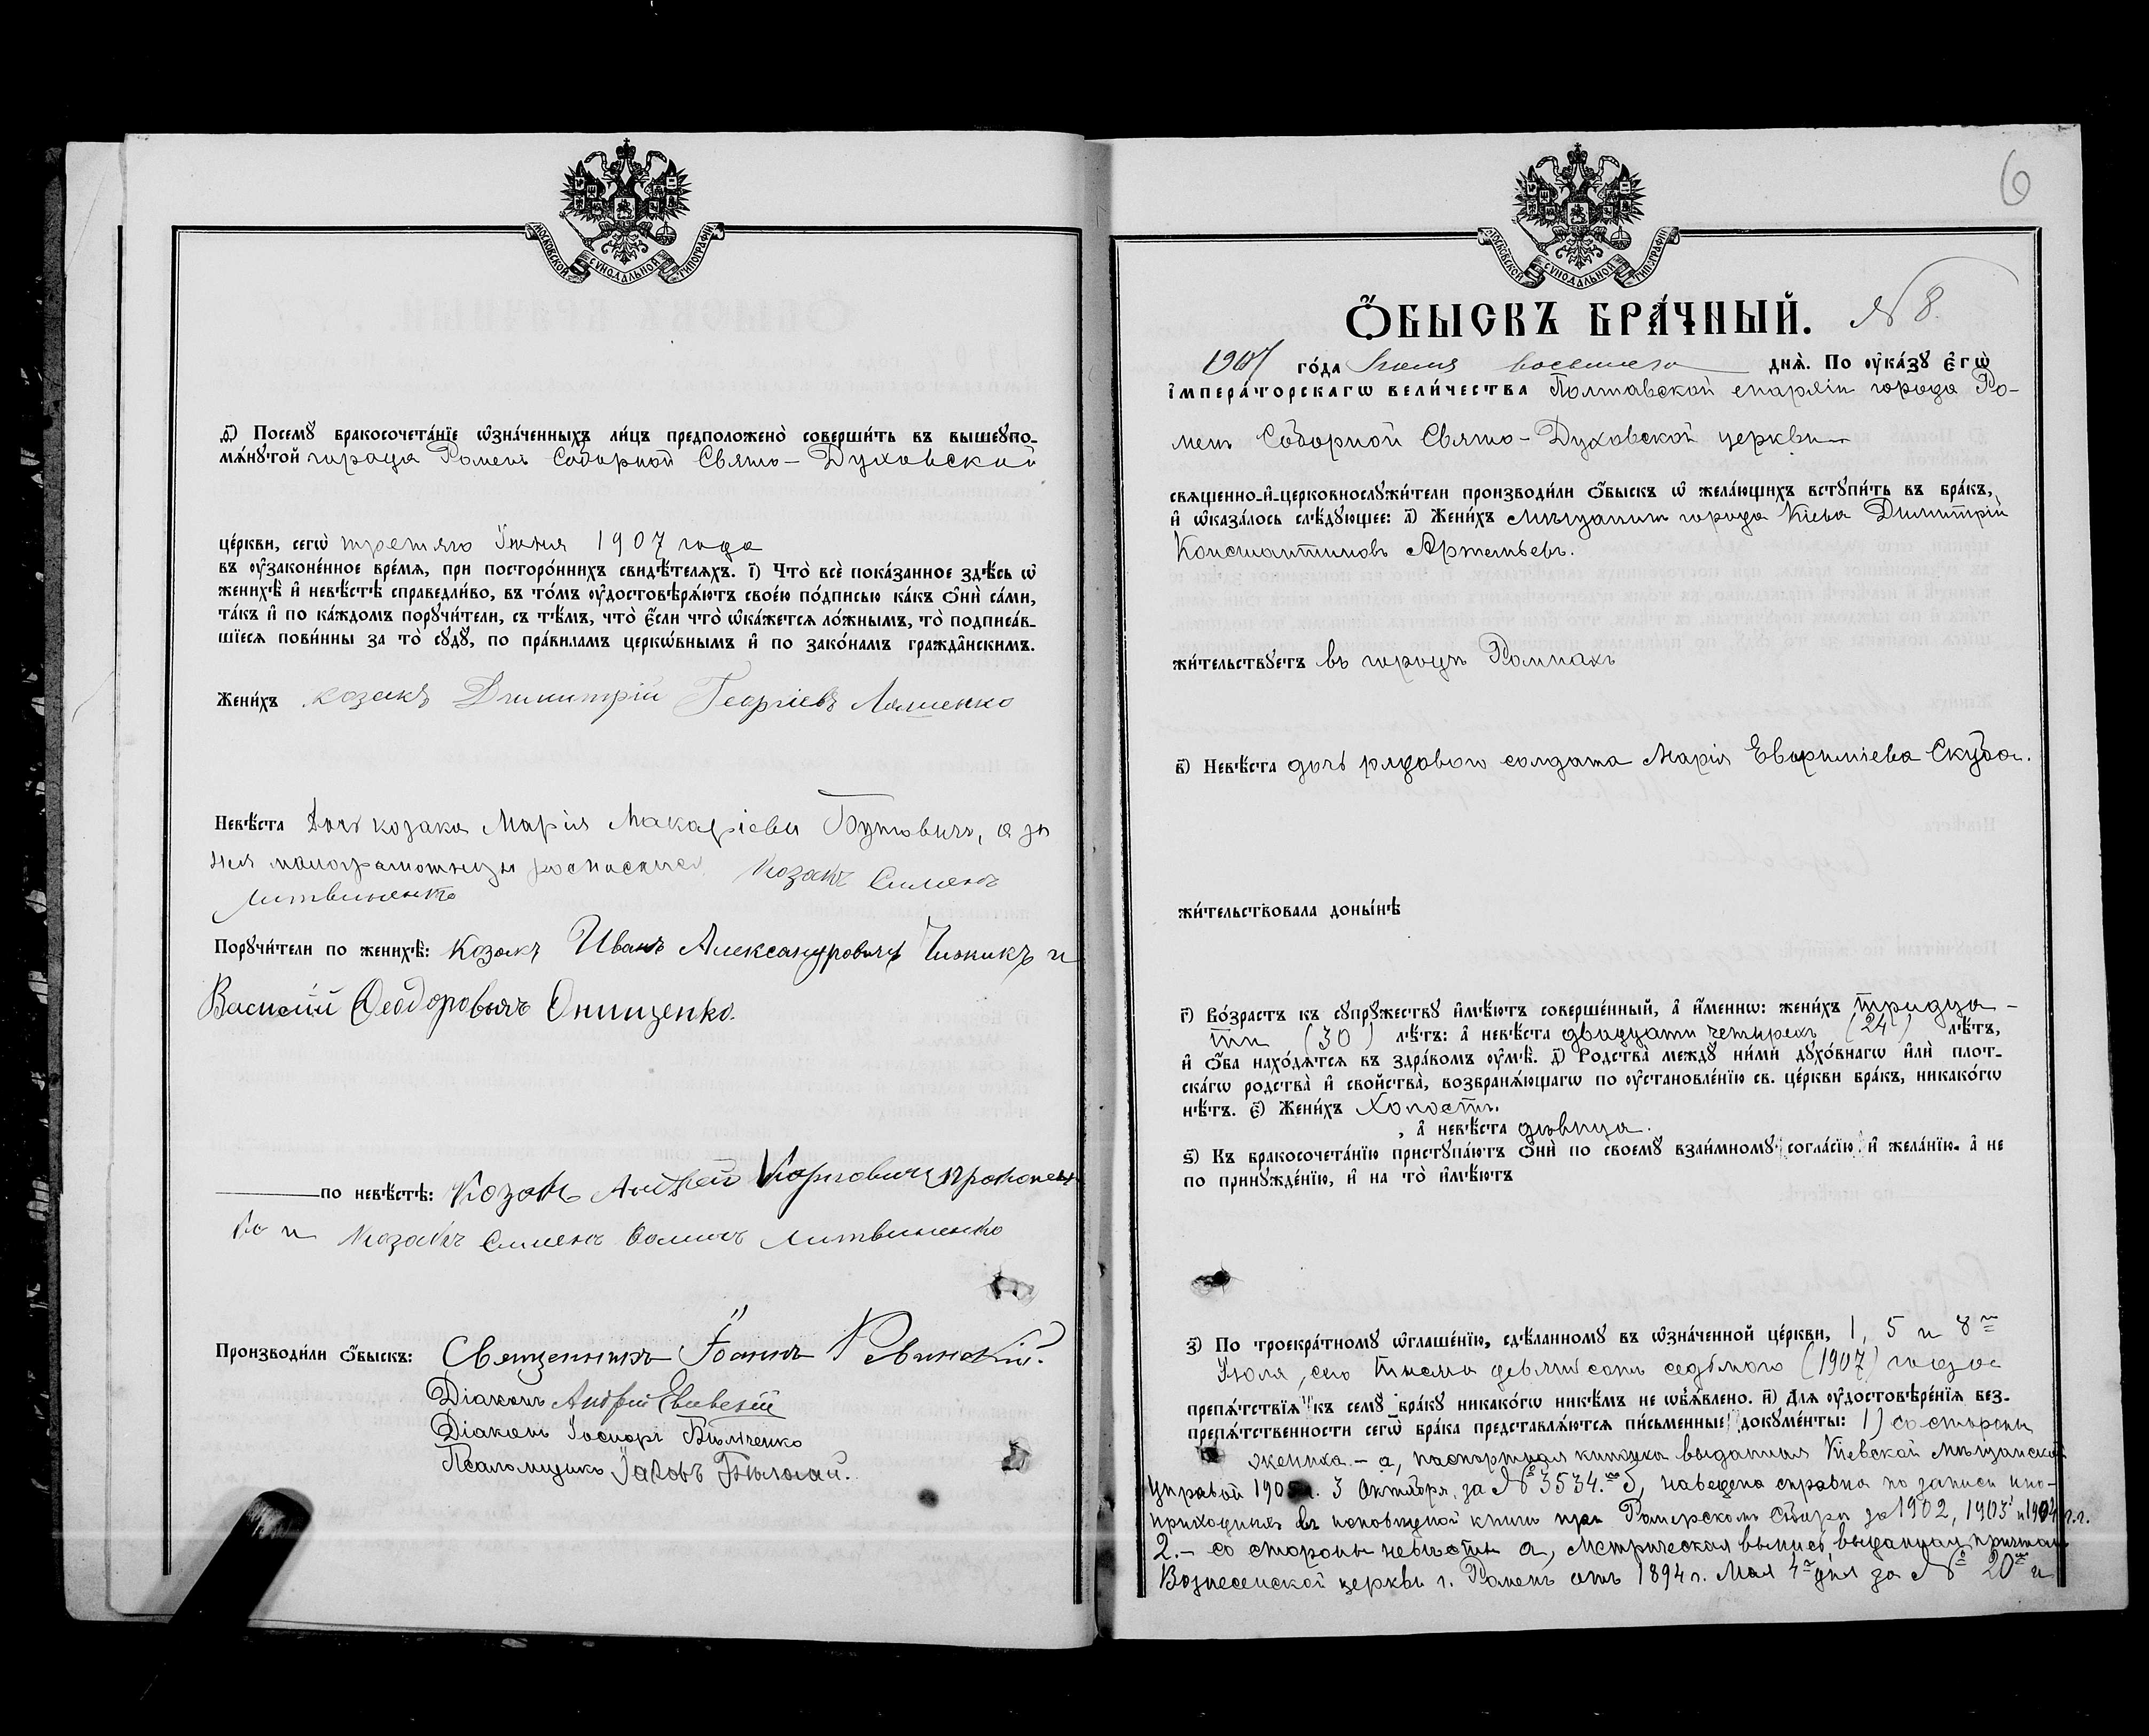 МОСКОВСКОЙ СУНОДАЛЬНОЙ ТИПОГРАФІИ
ѳ҃) Посемꙋ бракосочета́нїе ѡ҆зна́ченныхъ ли́цъ предположено̀ соверши́ть въ вышеꙋпо-
мѧ́нꙋтой города Роменъ Соборной Свято-Духовской
це́ркви, сегѡ̀ третьяго Іюня 1907 года
въ ᲂу҆зако́ненное вре́мѧ, при посторо́ннихъ свидѣ́телѧхъ. і҃) Что̀ всѐ пока́занное здѣ́сь ѡ҆
женихѣ̀ и҆ невѣ́стѣ справедли́во, въ то́мъ ᲂу҆достовѣрѧ́ютъ свое́ю по́дписью ка́къ ѻ҆нѝ са́ми,
та́къ и҆ по ка́ждомъ порꙋчи́тели, съ тѣ́мъ, что̀ є҆́сли что̀ ѡ҆ка́жетсѧ ло́жнымъ, то̀ подписа́в-
шїесѧ пови́нны за то̀ сꙋдꙋ̀, по пра́виламъ церкѡ́внымъ и҆ по зако́намъ гражда̂нскимъ.
Жени́хъ козакъ Димитрій Георгіевъ Ляшенко
Невѣ́ста Дочь козака Марія Макаріева Бутовичъ, а за
нея малограмотную росписался козакъ Симеонъ
Литвиненко
Порꙋчи́тели по женихѣ̀: Козакъ Иванъ Александровичъ Чижикъ и
Василій Ѳеодоровичъ Онищенко.
по невѣ́стѣ: Козакъ Андрей Карповичъ Прокопен
ко и Козакъ Симеонъ Литвиненко
Производи́ли ѻ҆́быскъ: Священникъ Іоаннъ Ревинскій.
Діаконъ Андрей
Діаконъ Іосифъ
Псаломщикъ Іаковъ
6
МОСКОВСКОЙ СУНОДАЛЬНОЙ ТИПОГРАФІИ
Ѻ҆́БЫСКЪ БРА́ЧНЫЙ. № 8.
1907 го́да Іюля восьмого днѧ̀. По ᲂу҆ка́зꙋ є҆гѡ̀
і҆мпера́торскагѡ вели́чества Полтавской епархіи города Ро-
менъ Соборной Свято-Духовской церкви
свѧщенно-и҆-церковнослꙋжи́тели производи́ли ѻ҆́быскъ ѡ҆ жела́ющихъ встꙋпи́ть въ бра́къ,
и҆ ѡ҆каза́лось слѣ́дꙋющее: а҃) Жени́хъ мѣщанинъ города Кіева Димитрій
Константиновъ Артемьевъ.
жи́тельствꙋетъ въ городѣ Ромнахъ
в҃) Невѣ́ста дочь рядового солдата Марія Евфиміева Скуба.
жи́тельствовала доны́нѣ
г҃) Во́зрастъ къ сꙋпрꙋ́жествꙋ и҆мѣ́ютъ соверше́нный, а҆ и҆́менно: жени́хъ тридца-
ти (30) лѣ́тъ: а҆ невѣ́ста двадцати четырехъ (24) лѣ́тъ,
и҆ ѻ҆́ба нахо́дѧтсѧ въ здра́вомъ ᲂу҆мѣ̀. д҃) Родства̀ междꙋ ни́ми дꙋхо́внагѡ и҆лѝ плот-
ска́гѡ родства̀ и҆ сво́йства̀, возбранѧ́ющагѡ по ᲂу҆становле́нїю св. це́ркви бра́къ, никако́гѡ
нѣ́тъ. є҃) Жени́хъ холостъ.
, а҆ невѣ́ста дѣвица.
ѕ҃) Къ бракосочета́нїю пристꙋпа́ютъ ѻ҆нѝ по своемꙋ̀ взаи́мномꙋ согла́сїю и҆ жела́нїю. а҆ не
по принꙋжде́нїю, и҆ на то̀ и҆мѣ́ютъ
з҃) По троекра́тномꙋ ѡ҆глаше́нїю, сдѣ́ланномꙋ въ ѡ҆зна́ченной це́ркви, 1, 5 и 8го
Іюля, сего тысяча девятьсотъ седьмого (1907) года
препѧ́тствїѧ къ семꙋ̀ бра́кꙋ никако́гѡ никѣ́мъ не ѡ҆б̾ѧ́влено. и҃) Длѧ ᲂу҆достовѣре́нїѧ без-
препѧ́тственности сегѡ̀ бра́ка представлѧ́ютсѧ пи́сьменные докꙋме́нты: 1) со стороны
жениха. – а, паспортная книжка выданная Кіевской мѣщанской
управой 190 г. 3 Октября за № 3534. б, наведена справка по записи ино-
приходныхъ въ исповѣдной книги при Роменскомъ Соборѣ за 1902, 1903 и 1904 г.г.
2. – со стороны невѣсты а, Метрическая выпись, выданная причтомъ
Вознесенской церкви г. Роменъ отъ 1894 г. Мая 4го дня за № 20 и